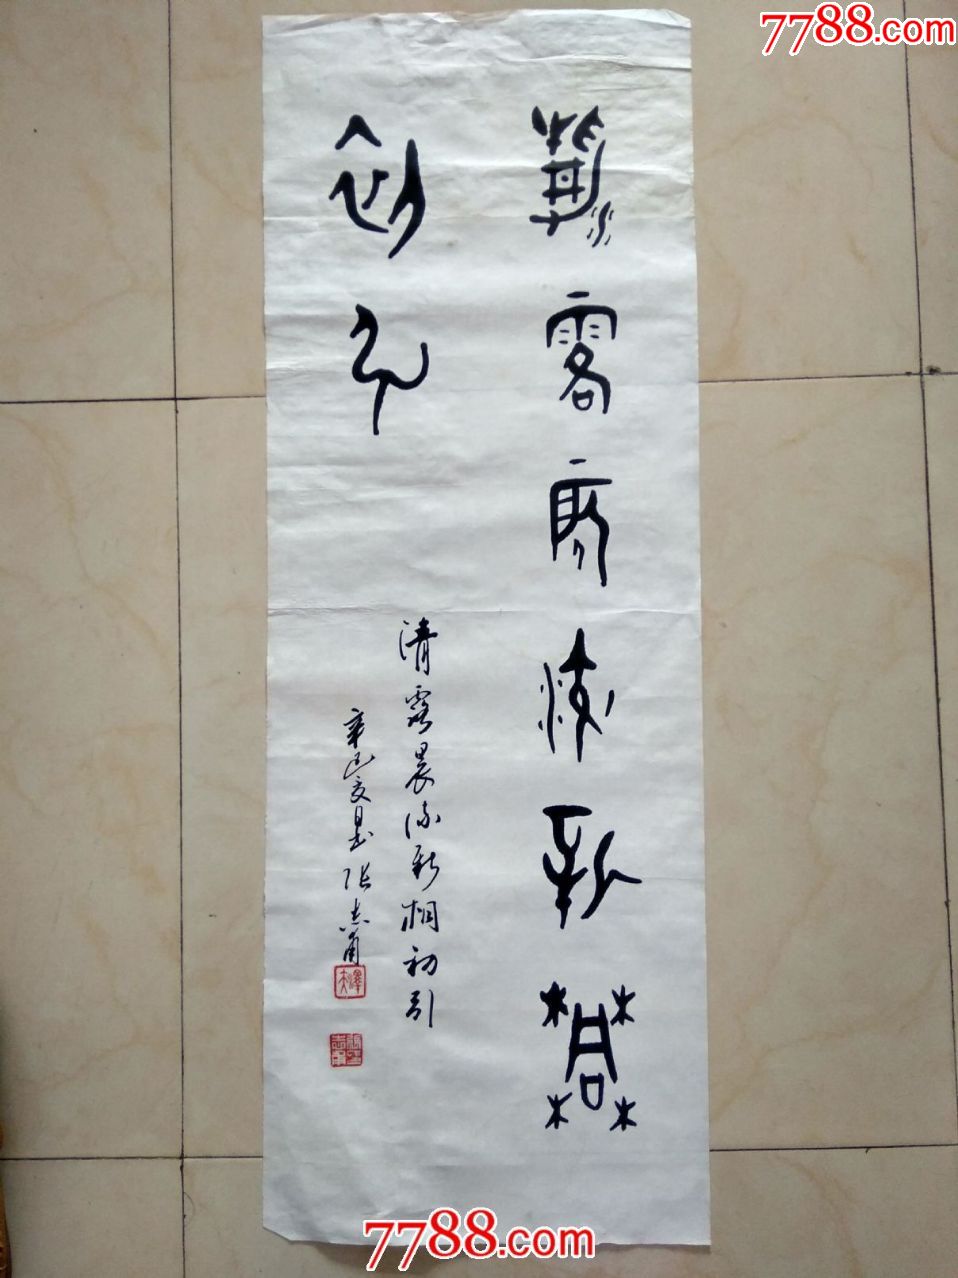 7788.com
清露晨流新桐
初引
清露晨流新桐初引
辛巳 张志
7788.com